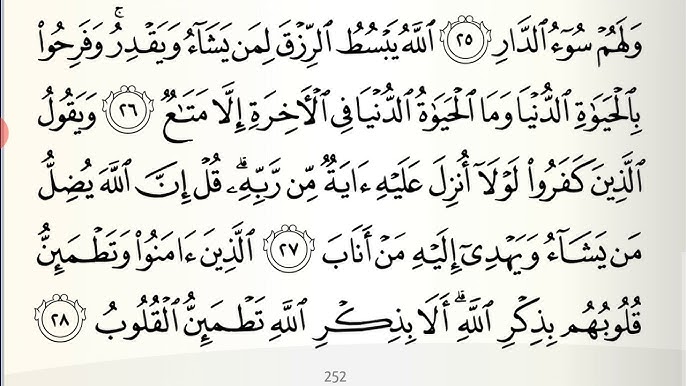 وَلَهُمْ سُوٓءُ ٱلدَّارِ ٢٥ ٱللَّهُ يَبْسُطُ ٱلرِّزْقَ لِمَن يَشَآءُ وَيَقْدِرُ ۚ وَفَرِحُوا۟
بِٱلْحَيَوٰةِ ٱلدُّنْيَا وَمَا ٱلْحَيَوٰةُ ٱلدُّنْيَا فِى ٱلْءَاخِرَةِ إِلَّا مَتَـٰعٌ ٢٦ وَيَقُولُ
ٱلَّذِينَ كَفَرُوا۟ لَوْلَآ أُنزِلَ عَلَيْهِ ءَايَةٌ مِّن رَّبِّهِۦ ۗ قُلْ إِنَّ ٱللَّهَ يُضِلُّ
مَن يَشَآءُ وَيَهْدِىٓ إِلَيْهِ مَنْ أَنَابَ ٢٧ ٱلَّذِينَ ءَامَنُوا۟ وَتَطْمَئِنُّ
قُلُوبُهُم بِذِكْرِ ٱللَّهِ ۗ أَلَا بِذِكْرِ ٱللَّهِ تَطْمَئِنُّ ٱلْقُلُوبُ ٢٨
252